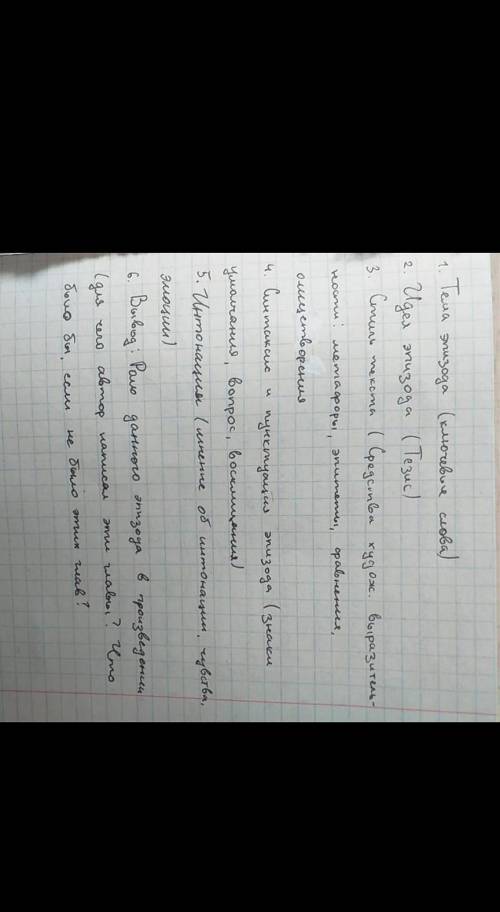 1. Тема эпизода (ключевые слова)
2. Идея эпизода (Тезис)
3. Стиль текста (Средства худож. выразитель-
ности: метафоры, эпитеты, сравнения,
олицетворения
4. Синтаксис и пунктуация эпизода (знаки
умолчания, вопрос, восклицания)
5. Интонация (мнение об интонации. чувства,
эмоции)
6. Вывод: Роль данного эпизода в произведении
(для чего автор написал эти главы? Что
было бы, если не было этих глав?